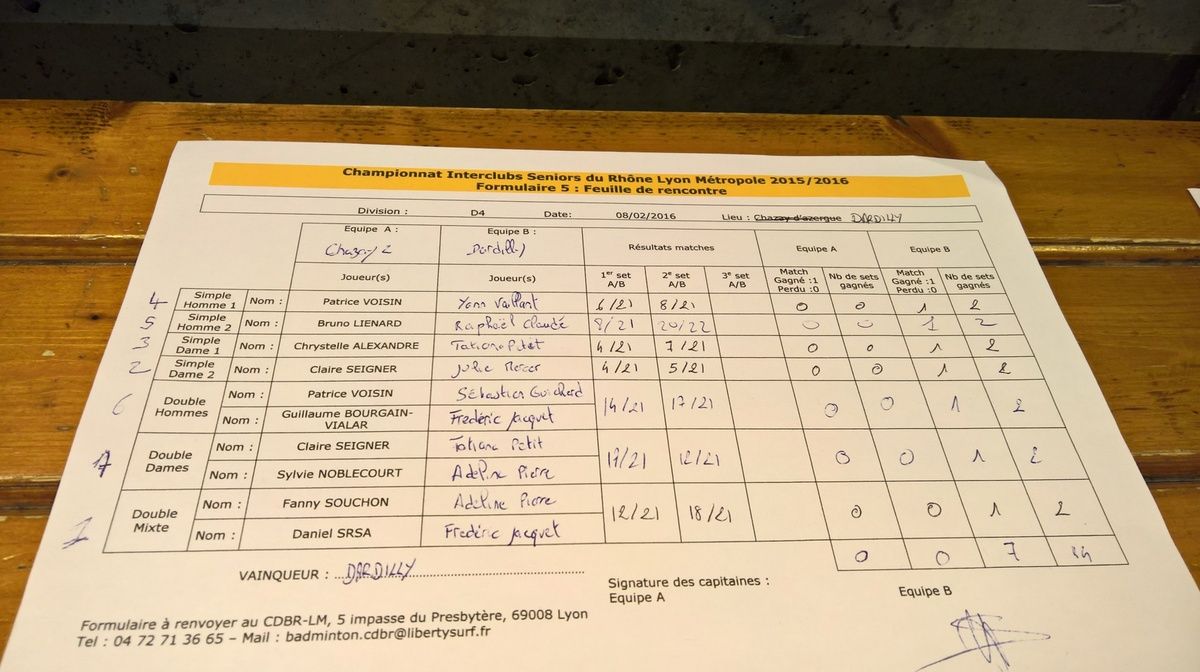 Championnat Interclubs Seniors du Rhône Lyon Métropole 2015/2016
Formulaire 5 : Feuille de rencontre
Division : D4 Date: 08/02/2016 Lieu : Chazay d'azergue DARDILLY
Equipe A : Equipe B : Résultats matches Equipe A Equipe B
Chazay 2 Dardilly
Joueur(s) Joueur(s) 1er set A/B 2e set A/B 3e set A/B Match Gagné :1 Perdu :0 Nb de sets gagnés Match Gagné :1 Perdu :0 Nb de sets gagnés
4 Simple Homme 1 Nom : Patrice VOISIN Yann Vaillant 6/21 8/21 0 0 1 2
5 Simple Homme 2 Nom : Bruno LIENARD Raphaël Claudé 8/21 20/22 0 0 1 2
3 Simple Dame 1 Nom : Chrystelle ALEXANDRE Tatiana Petit 4/21 7/21 0 0 1 2
2 Simple Dame 2 Nom : Claire SEIGNER Julie Mercer 4/21 5/21 0 0 1 2
6 Double Hommes Nom : Patrice VOISIN Sébastien Guichard 14/21 17/21 0 0 1 2
Nom : Guillaume BOURGAIN-VIALAR Frédéric Jacquet
7 Double Dames Nom : Claire SEIGNER Tatiana Petit 17/21 12/21 0 0 1 2
Nom : Sylvie NOBLECOURT Adeline Pierre
1 Double Mixte Nom : Fanny SOUCHON Adeline Pierre 12/21 18/21 0 0 1 2
Nom : Daniel SRSA Frédéric Jacquet
0 0 7 14
VAINQUEUR : DARDILLY
Signature des capitaines :
Equipe A Equipe B
Formulaire à renvoyer au CDBR-LM, 5 impasse du Presbytère, 69008 Lyon
Tel : 04 72 71 36 65 – Mail : badminton.cdbr@libertysurf.fr